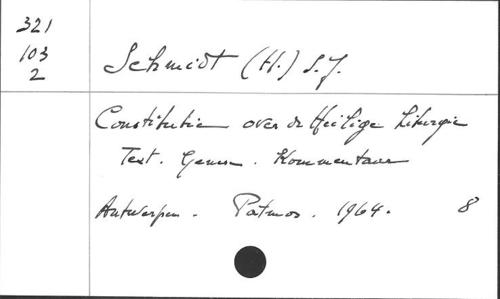 321
103
2
Schmidt (H.) S.J.
Constitutie over de Heilige Liturgie
Text. Genese. Kommentaar
Antwerpen. Patmos. 1964. 8